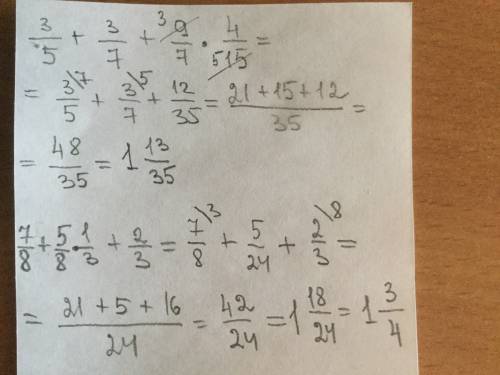 3/5 + 3/7 + ³9/7 · 4/₅15 =
= 3/5 ⁷ + 3/7 ⁵ + 12/35 = (21 + 15 + 12)/35 =
= 48/35 = 1 13/35
7/8 + 5/8 · 1/3 + 2/3 = 7/8 ³ + 5/24 + 2/3 ⁸ =
= (21 + 5 + 16)/24 = 42/24 = 1 18/24 = 1 3/4